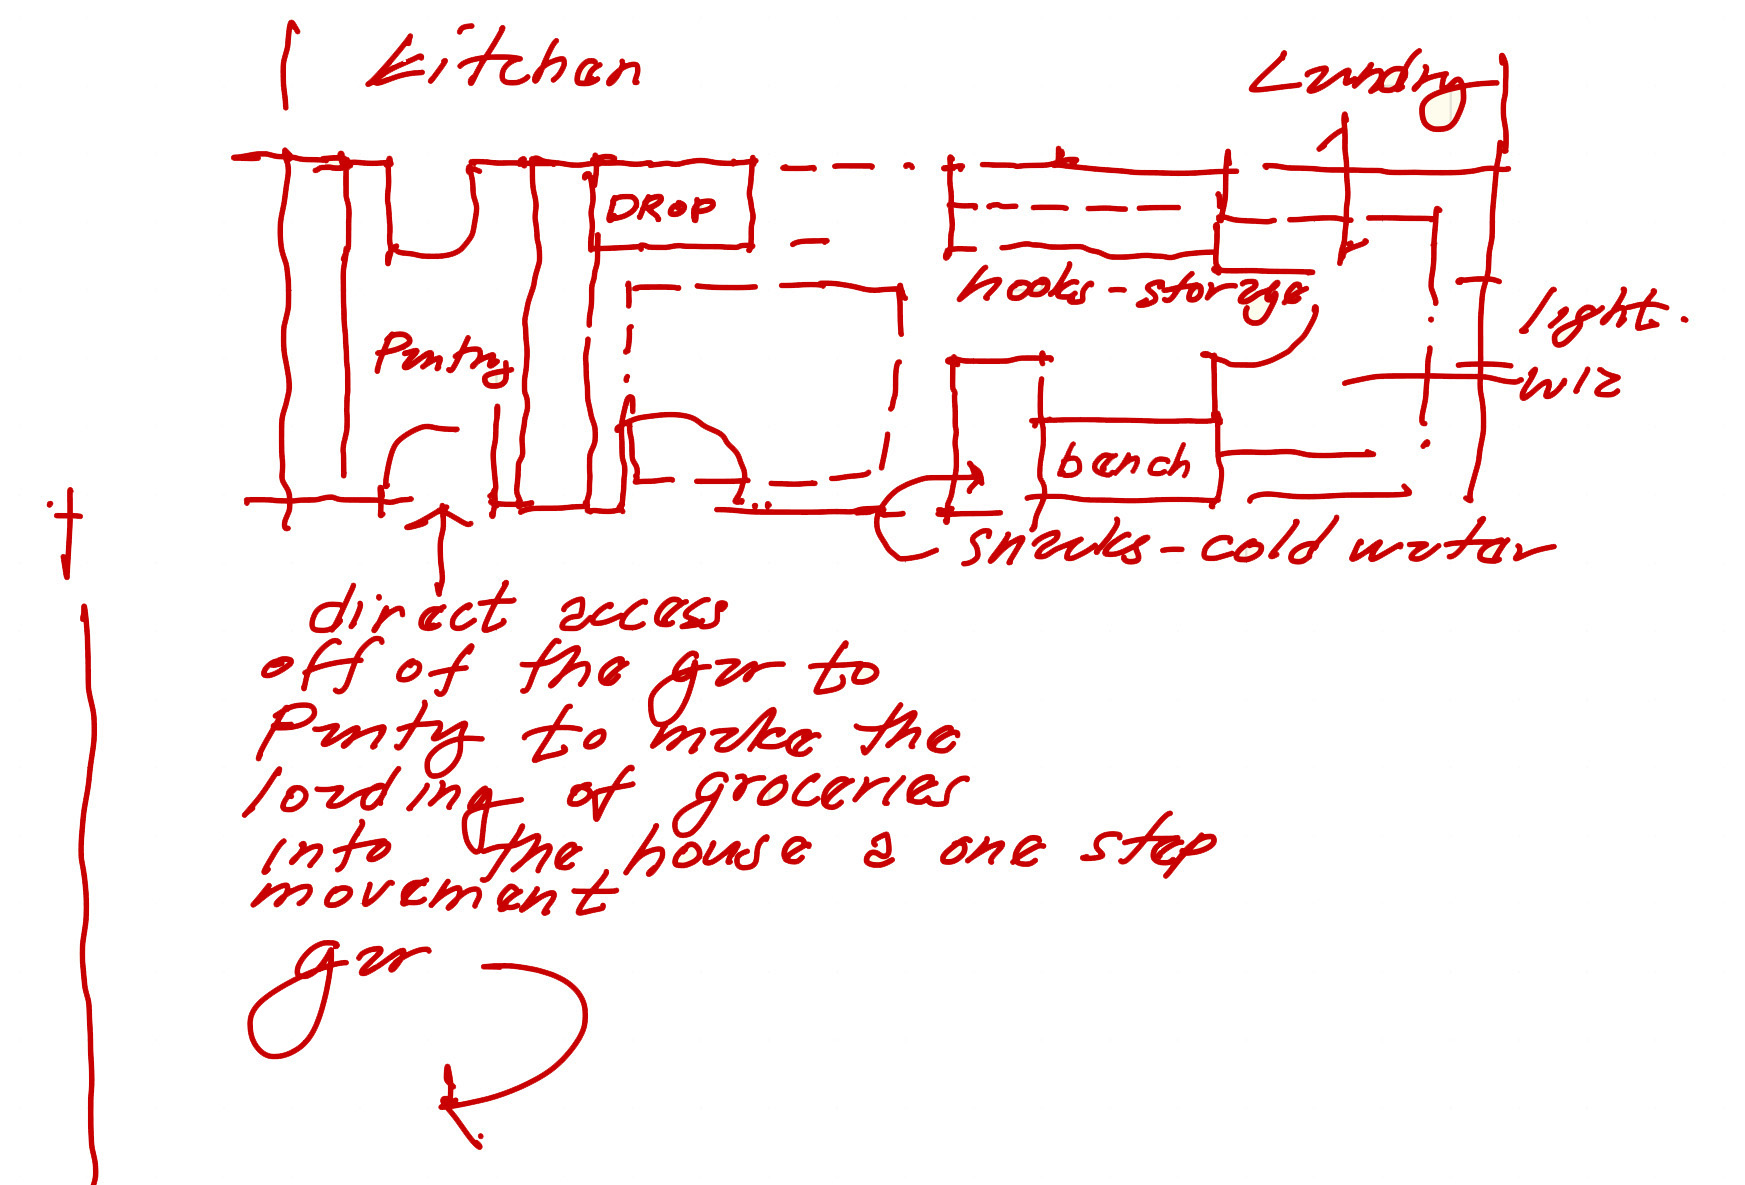 Kitchen
Laundry
DROP
hooks-storage
Pantry
light.
WIC
bench
snacks-cold water
direct access
off of the gar to
Pantry to make the
loading of groceries
into the house a one step
movement
gar